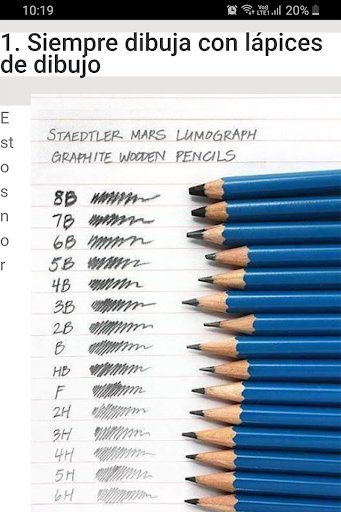 10:19 Vo) LTE1 20%
1. Siempre dibuja con lápices
de dibujo
E
st
o
s
n
o
r
STAEDTLER MARS LUMOGRAPH
GRAPHITE WOODEN PENCILS
8B
7B
6B
5B
4B
3B
2B
B
HB
F
2H
3H
4H
5H
6H